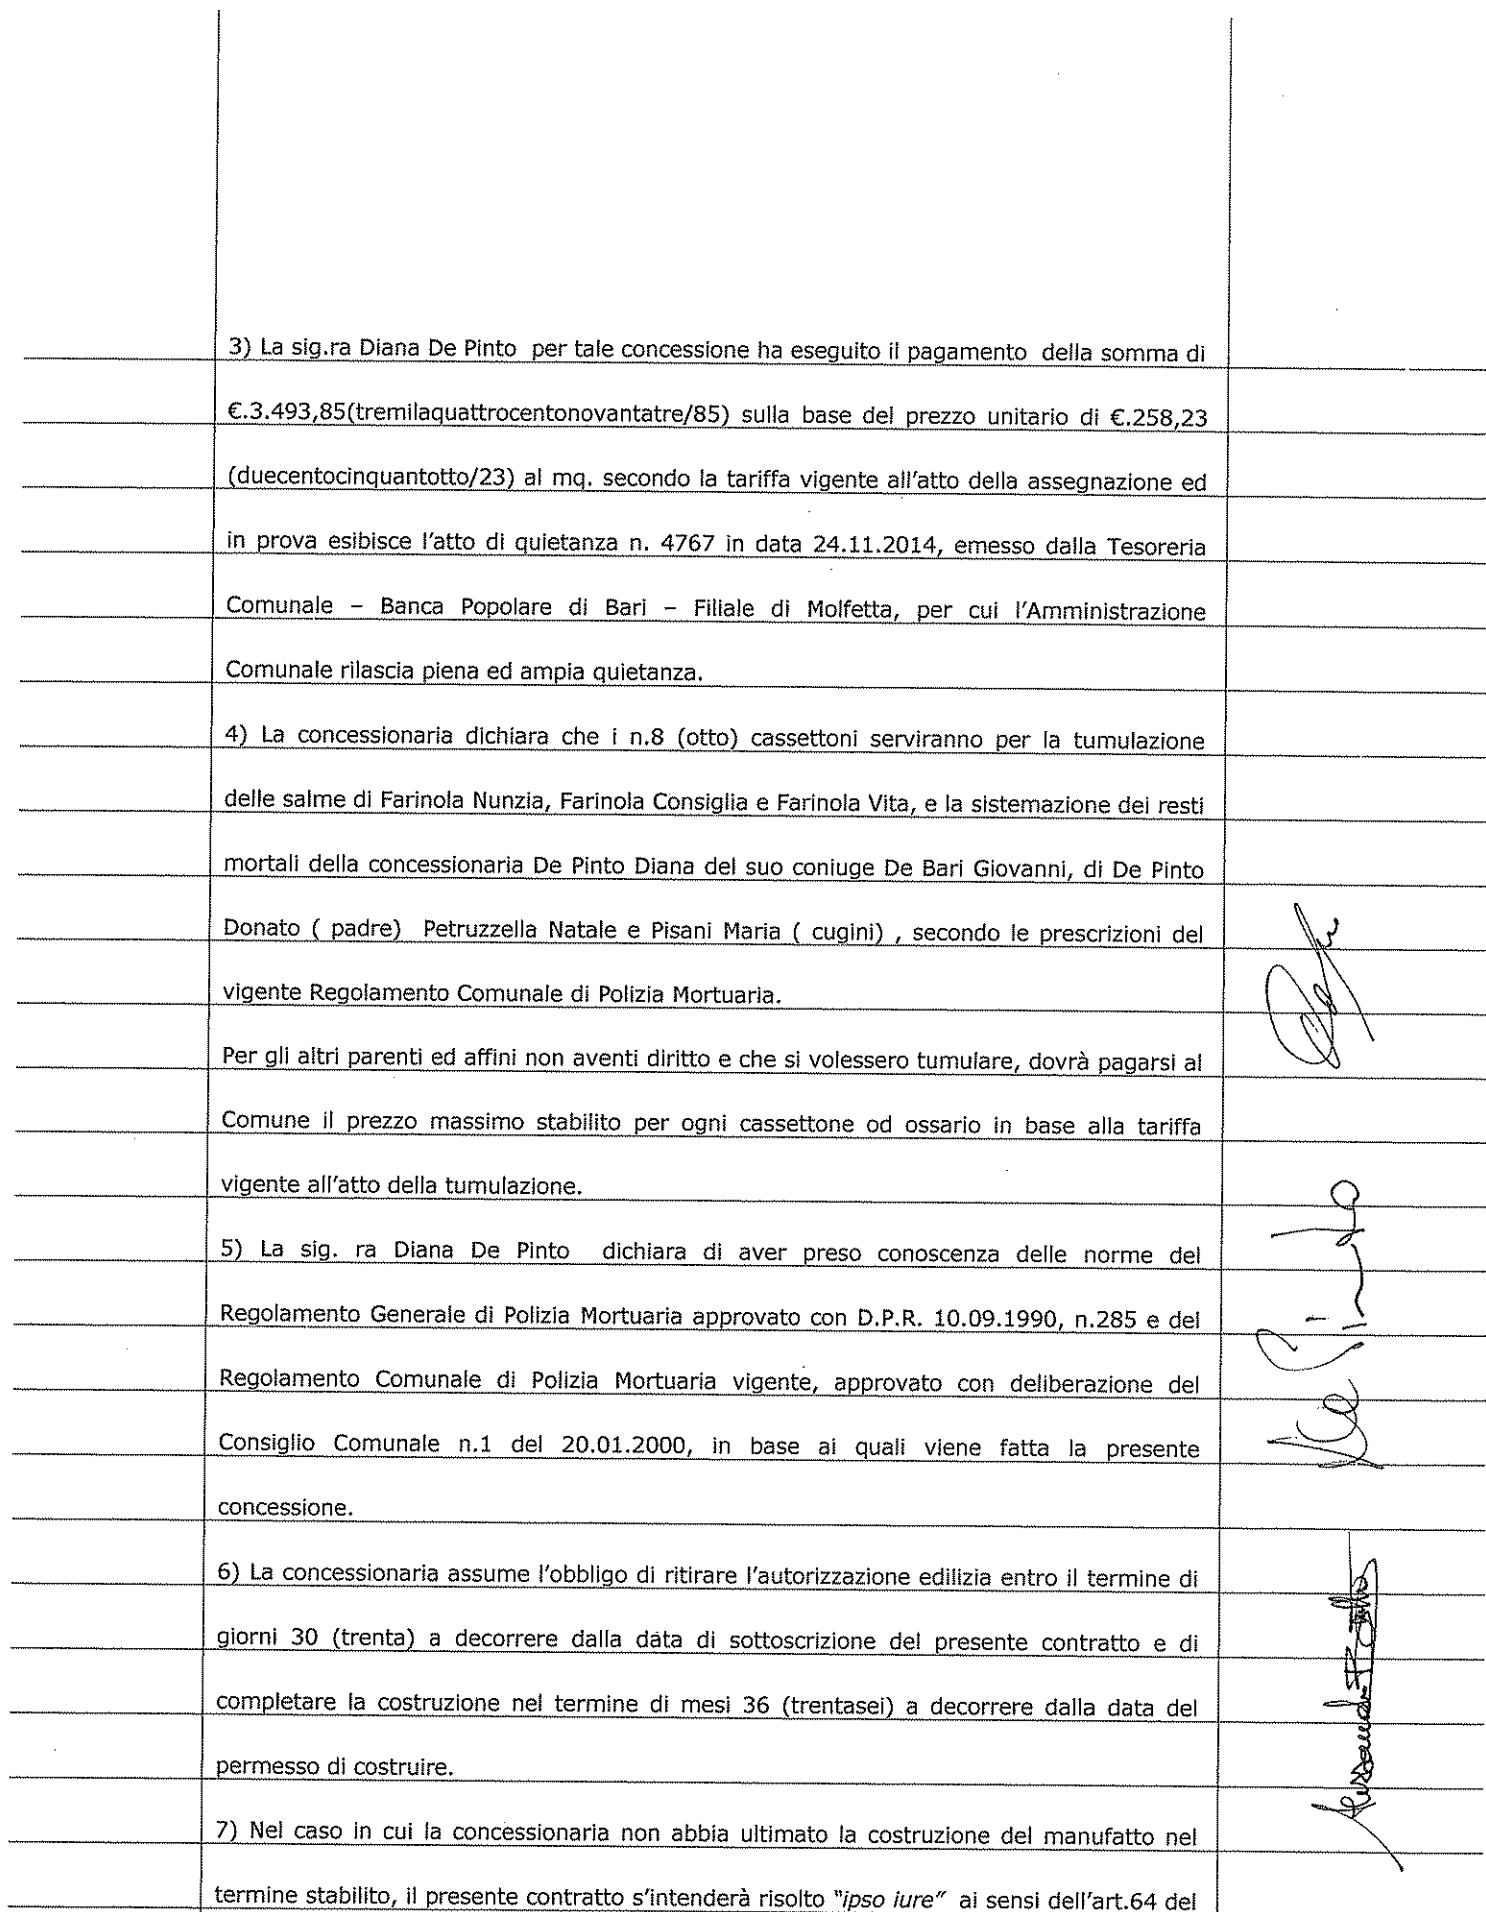 3) La sig.ra Diana De Pinto per tale concessione ha eseguito il pagamento della somma di
€.3.493,85(tremilaquattrocentonovantatre/85) sulla base del prezzo unitario di €.258,23
(duecentocinquantotto/23) al mq. secondo la tariffa vigente all'atto della assegnazione ed
in prova esibisce l'atto di quietanza n. 4767 in data 24.11.2014, emesso dalla Tesoreria
Comunale – Banca Popolare di Bari – Filiale di Molfetta, per cui l'Amministrazione
Comunale rilascia piena ed ampia quietanza.
4) La concessionaria dichiara che i n.8 (otto) cassettoni serviranno per la tumulazione
delle salme di Farinola Nunzia, Farinola Consiglia e Farinola Vita, e la sistemazione dei resti
mortali della concessionaria De Pinto Diana del suo coniuge De Bari Giovanni, di De Pinto
Donato ( padre) Petruzzella Natale e Pisani Maria ( cugini) , secondo le prescrizioni del
vigente Regolamento Comunale di Polizia Mortuaria.
Per gli altri parenti ed affini non aventi diritto e che si volessero tumulare, dovrà pagarsi al
Comune il prezzo massimo stabilito per ogni cassettone od ossario in base alla tariffa
vigente all'atto della tumulazione.
5) La sig. ra Diana De Pinto dichiara di aver preso conoscenza delle norme del
Regolamento Generale di Polizia Mortuaria approvato con D.P.R. 10.09.1990, n.285 e del
Regolamento Comunale di Polizia Mortuaria vigente, approvato con deliberazione del
Consiglio Comunale n.1 del 20.01.2000, in base ai quali viene fatta la presente
concessione.
6) La concessionaria assume l'obbligo di ritirare l'autorizzazione edilizia entro il termine di
giorni 30 (trenta) a decorrere dalla data di sottoscrizione del presente contratto e di
completare la costruzione nel termine di mesi 36 (trentasei) a decorrere dalla data del
permesso di costruire.
7) Nel caso in cui la concessionaria non abbia ultimato la costruzione del manufatto nel
termine stabilito, il presente contratto s'intenderà risolto "ipso iure" ai sensi dell'art.64 del
De Pinto